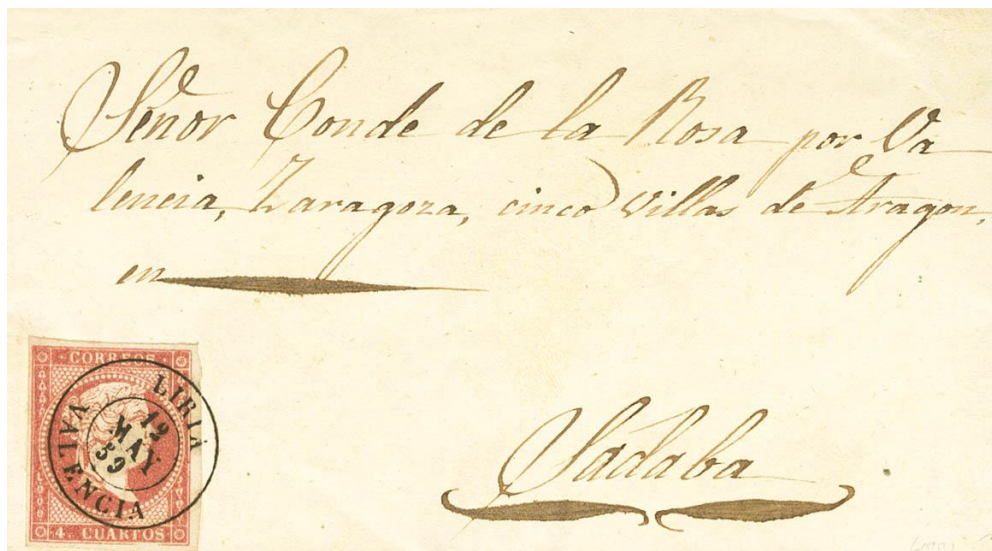 Señor Conde de la Rosa por Va
lencia, Zaragoza, cinco Villas de Aragon,
en
Sádaba
CORREOS
LIRIA
12
MAY
59
VALENCIA
4 CUARTOS